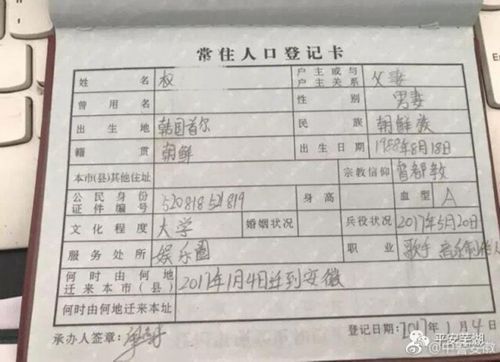 常住人口登记卡
姓名 权 户主或与户主关系 父妻
曾用名 性别 男妻
出生地 韩国首尔 民族 朝鲜族
籍贯 朝鲜 出生日期 1988年8月18日
本市(县)其他住址 宗教信仰
公民身份证件编号 520818 521819 身高 血型 A
文化程度 大学 婚姻状况 兵役状况 2017年5月20日
服务处所 娱乐圈 职业 歌手 音乐制作人
何时由何地迁来本市(县) 2017年1月4日迁到安徽
何时由何地迁来本址
承办人签章: 登记日期: 2017年1月4日
平安芜湖